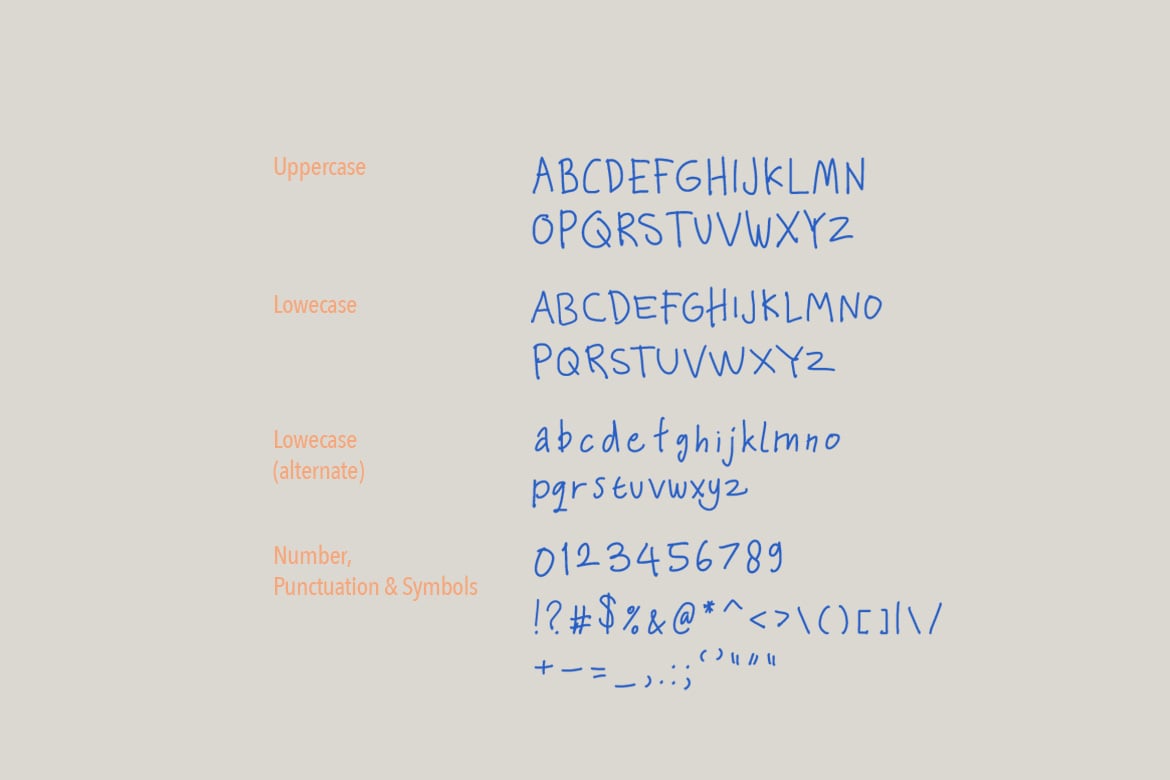 Uppercase
ABCDEFGHIJKLMN
OPQRSTUVWXYZ
Lowecase
ABCDEFGHIJKLMNO
PQRSTUVWXYZ
Lowecase
(alternate)
abcdefghijklmno
pqrstuvwxyz
Number,
Punctuation & Symbols
0123456789
!?#$%&@*^<>\()[]|\/
+–=_,.:;‘’“”"